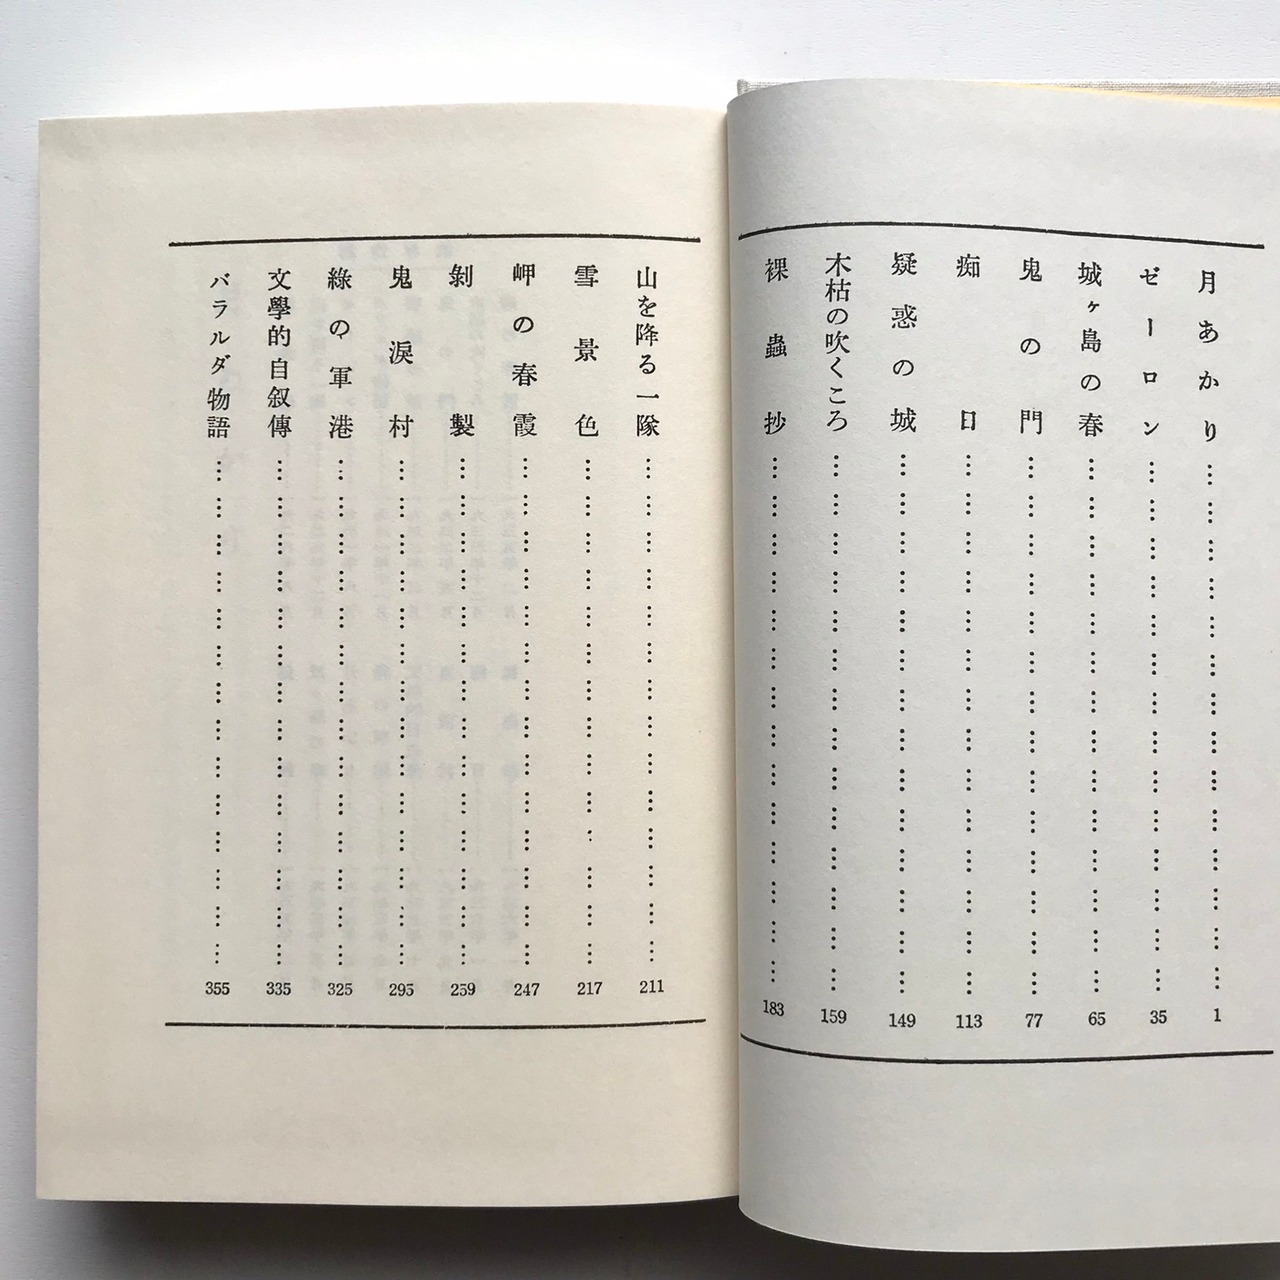 月あかり……………………………………1
ゼーロン……………………………………35
城ヶ島の春……………………………………65
鬼の門……………………………………77
痴日……………………………………113
疑惑の城……………………………………149
木枯の吹くころ……………………………………159
裸蟲抄……………………………………183
山を降る一隊……………………………………211
雪景色……………………………………217
岬の春霞……………………………………247
剝製……………………………………259
鬼涙村……………………………………295
綠の軍港……………………………………325
文學的自叙傳……………………………………335
バラルダ物語……………………………………355